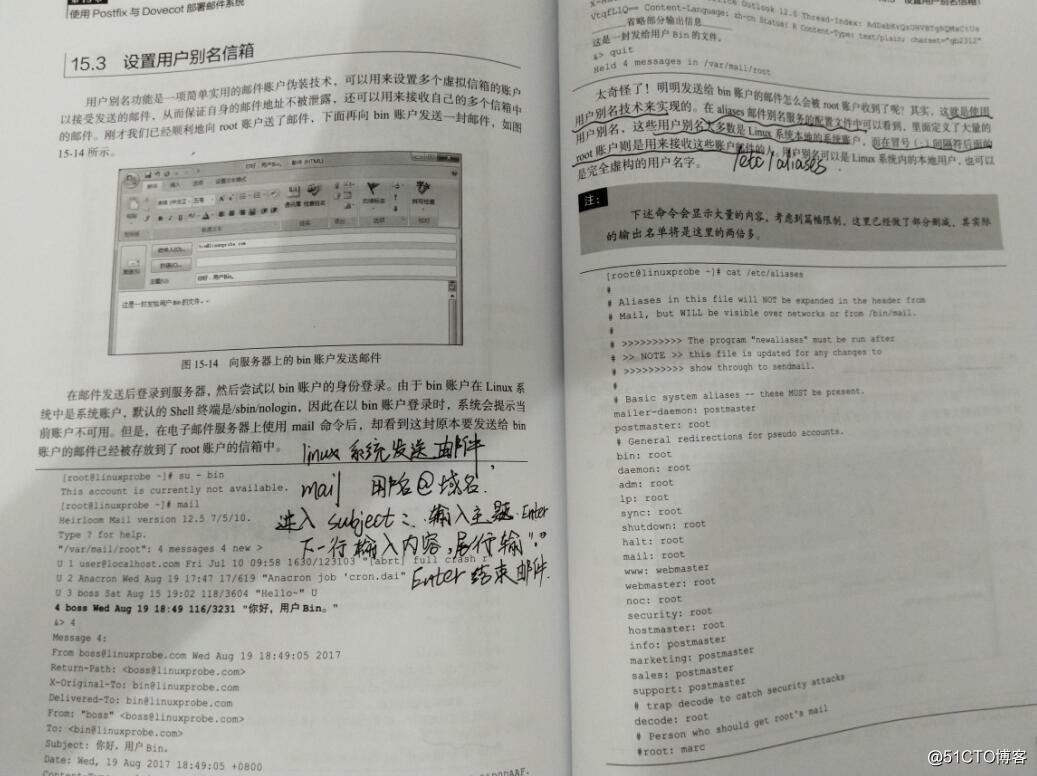 使用 Postfix 与 Dovecot 部署邮件系统
15.3 设置用户别名信箱
用户别名功能是一项简单实用的邮件账户伪装技术，可以用来设置多个虚拟信箱的账户
以接受发送的邮件，从而保证自身的邮件地址不被泄露，还可以用来接收自己的多个信箱中
的邮件。刚才我们已经顺利地向 root 账户送了邮件，下面再向 bin 账户发送一封邮件，如图
15-14 所示。
图 15-14 向服务器上的 bin 账户发送邮件
在邮件发送后登录到服务器，然后尝试以 bin 账户的身份登录。由于 bin 账户在 Linux 系
统中是系统账户，默认的 Shell 终端是/sbin/nologin，因此在以 bin 账户登录时，系统会提示当
前账户不可用。但是，在电子邮件服务器上使用 mail 命令后，却看到这封原本要发送给 bin
账户的邮件已经被存放到了 root 账户的信箱中。
linux 系统发送邮件
mail 用户名@域名
进入 subject: 输入主题 Enter
下一行输入内容，尾行输"."
Enter 结束邮件.
[root@linuxprobe ~]# su - bin
This account is currently not available.
[root@linuxprobe ~]# mail
Heirloom Mail version 12.5 7/5/10.
Type ? for help.
"/var/mail/root": 4 messages 4 new >
U 1 user@localhost.com Fri Jul 10 09:58 1630/123103 "[abrt] full crash r"
U 2 Anacron Wed Aug 19 17:47 17/619 "Anacron job 'cron.dai"
U 3 boss Sat Aug 15 19:02 118/3604 "Hello~" U
4 boss Wed Aug 19 18:49 116/3231 "你好，用户 Bin。"
&> 4
Message 4:
From boss@linuxprobe.com Wed Aug 19 18:49:05 2017
Return-Path: <boss@linuxprobe.com>
X-Original-To: bin@linuxprobe.com
Delivered-To: bin@linuxprobe.com
From: "boss" <boss@linuxprobe.com>
To: <bin@linuxprobe.com>
Subject: 你好，用户 Bin.
Date: Wed, 19 Aug 2017 18:49:05 +0800
Content-Language: zh-cn Status: R Content-Type: text/plain; charset="gb2312"
省略部分输出信息
这是一封发给用户 Bin 的文件。
&> quit
Held 4 messages in /var/mail/root
太奇怪了！明明发送给 bin 账户的邮件怎么会被 root 账户收到了呢？其实，这就是使用
用户别名技术来实现的。在 aliases 邮件别名服务的配置文件中可以看到，里面定义了大量的
用户别名，这些用户别名大多数是 Linux 系统本地的系统账户，而在冒号（:）间隔符后面的
root 账户则是用来接收这些账户邮件的人。用户别名可以是 Linux 系统内的本地用户，也可以
是完全虚构的用户名字。
/etc/aliases
注：
下述命令会显示大量的内容，考虑到篇幅限制，这里已经做了部分删减，其实际
的输出名单将是这里的两倍多。
[root@linuxprobe ~]# cat /etc/aliases
#
# Aliases in this file will NOT be expanded in the header from
# Mail, but WILL be visible over networks or from /bin/mail.
#
# >>>>>>>>>> The program "newaliases" must be run after
# >> NOTE >> this file is updated for any changes to
# >>>>>>>>>> show through to sendmail.
#
# Basic system aliases -- these MUST be present.
mailer-daemon: postmaster
postmaster: root
# General redirections for pseudo accounts.
bin: root
daemon: root
adm: root
lp: root
sync: root
shutdown: root
halt: root
mail: root
www: webmaster
webmaster: root
noc: root
security: root
hostmaster: root
info: postmaster
marketing: postmaster
sales: postmaster
support: postmaster
# trap decode to catch security attacks
decode: root
# Person who should get root's mail
#root: marc
@51CTO博客